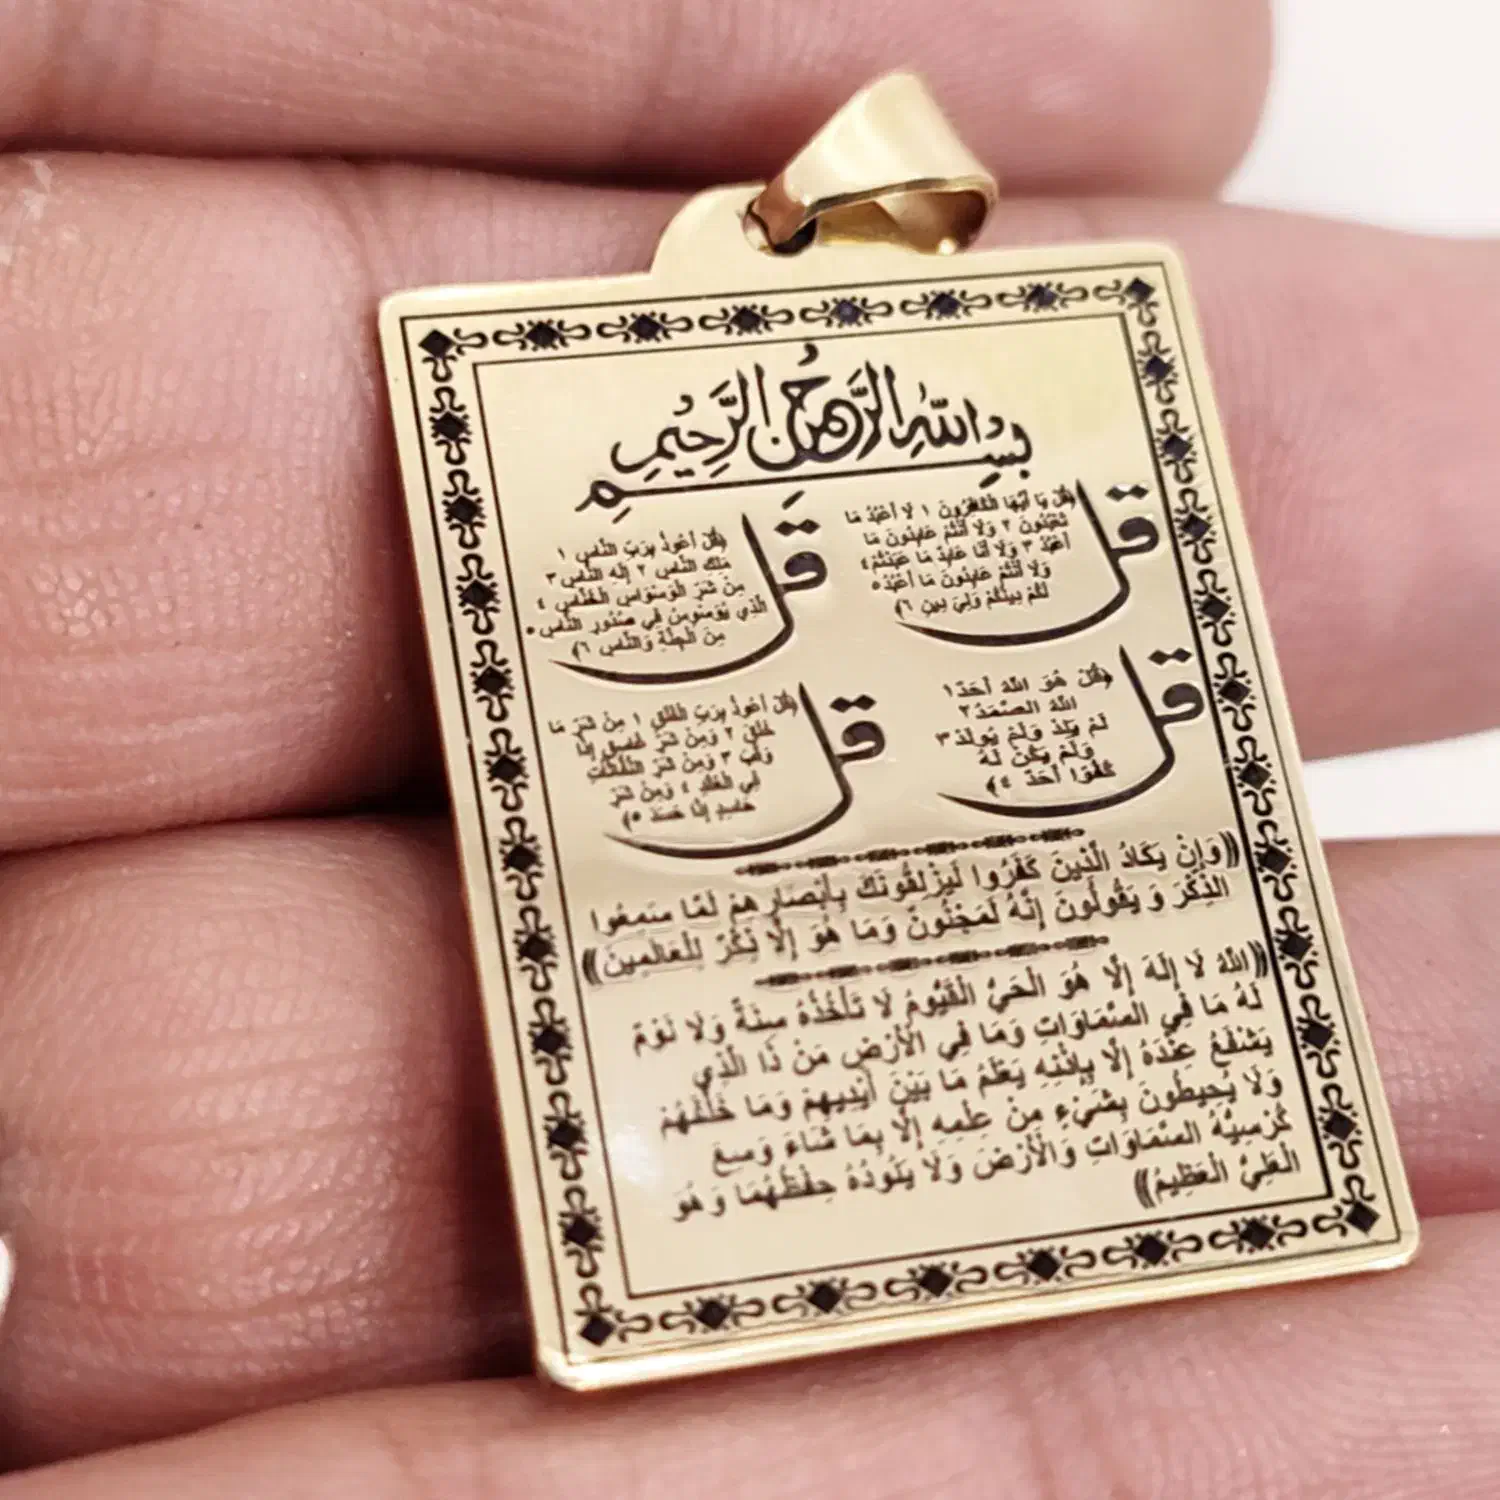 بِسْمِ اللهِ الرَّحْمٰنِ الرَّحِيْمِ
قل
﴿قُلْ يَا أَيُّهَا الْكَافِرُونَ ١ لَا أَعْبُدُ مَا
تَعْبُدُونَ ٢ وَلَا أَنْتُمْ عَابِدُونَ مَا
أَعْبُدُ ٣ وَلَا أَنَا عَابِدٌ مَا عَبَدْتُمْ ٤
وَلَا أَنْتُمْ عَابِدُونَ مَا أَعْبُدُ ٥
لَكُمْ دِينُكُمْ وَلِيَ دِينِ ٦﴾
قل
﴿قُلْ أَعُوذُ بِرَبِّ النَّاسِ ١
مَلِكِ النَّاسِ ٢ إِلَهِ النَّاسِ ٣
مِنْ شَرِّ الْوَسْوَاسِ الْخَنَّاسِ ٤
الَّذِي يُوَسْوِسُ فِي صُدُورِ النَّاسِ ٥
مِنَ الْجِنَّةِ وَالنَّاسِ ٦﴾
قل
﴿قُلْ هُوَ اللهُ أَحَدٌ ١
اللهُ الصَّمَدُ ٢
لَمْ يَلِدْ وَلَمْ يُولَدْ ٣
وَلَمْ يَكُنْ لَهُ
كُفُوًا أَحَدٌ ٤﴾
قل
﴿قُلْ أَعُوذُ بِرَبِّ الْفَلَقِ ١ مِنْ شَرِّ مَا
خَلَقَ ٢ وَمِنْ شَرِّ غَاسِقٍ إِذَا
وَقَبَ ٣ وَمِنْ شَرِّ النَّفَّاثَاتِ
فِي الْعُقَدِ ٤ وَمِنْ شَرِّ
حَاسِدٍ إِذَا حَسَدَ ٥﴾
((وَإِنْ يَكَادُ الَّذِينَ كَفَرُوا لَيُزْلِقُونَكَ بِأَبْصَارِهِمْ لَمَّا سَمِعُوا
الذِّكْرَ وَ يَقُولُونَ إِنَّهُ لَمَجْنُونٌ وَمَا هُوَ إِلَّا ذِكْرٌ لِلْعَالَمِينَ))
((اللهُ لَا إِلَهَ إِلَّا هُوَ الْحَيُّ الْقَيُّومُ لَا تَأْخُذُهُ سِنَةٌ وَلَا نَوْمٌ
لَهُ مَا فِي السَّمَاوَاتِ وَمَا فِي الْأَرْضِ مَنْ ذَا الَّذِي
يَشْفَعُ عِنْدَهُ إِلَّا بِإِذْنِهِ يَعْلَمُ مَا بَيْنَ أَيْدِيهِمْ وَمَا خَلْفَهُمْ
وَلَا يُحِيطُونَ بِشَيْءٍ مِنْ عِلْمِهِ إِلَّا بِمَا شَاءَ وَسِعَ
كُرْسِيُّهُ السَّمَاوَاتِ وَالْأَرْضَ وَلَا يَئُودُهُ حِفْظُهُمَا وَهُوَ
الْعَلِيُّ الْعَظِيمُ))